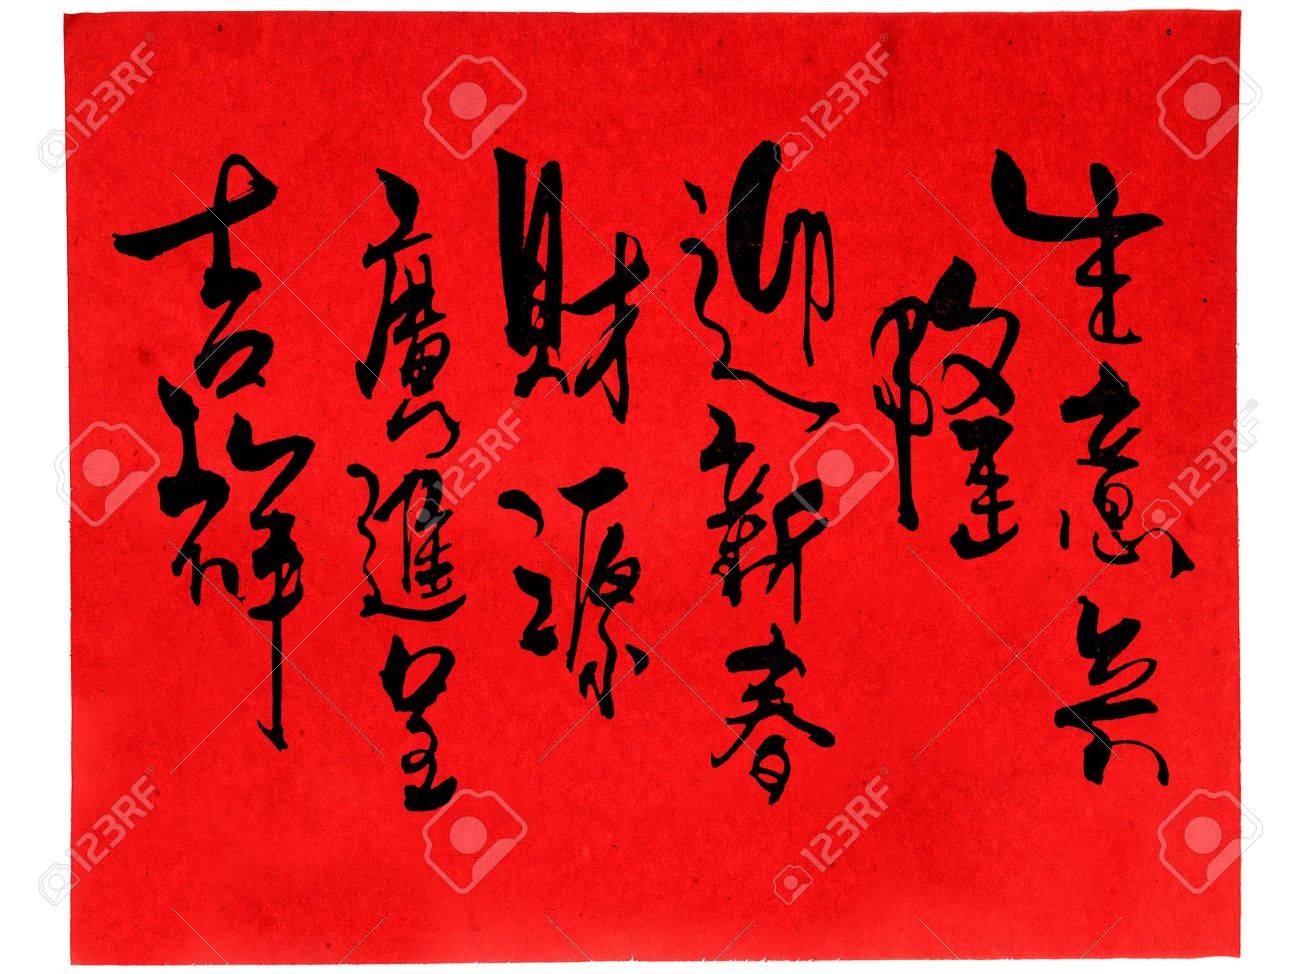 生意興
隆
迎新春
財源
廣進呈
吉祥
123RF
123RF
123RF
123RF
123RF
123RF
123RF
123RF
123RF